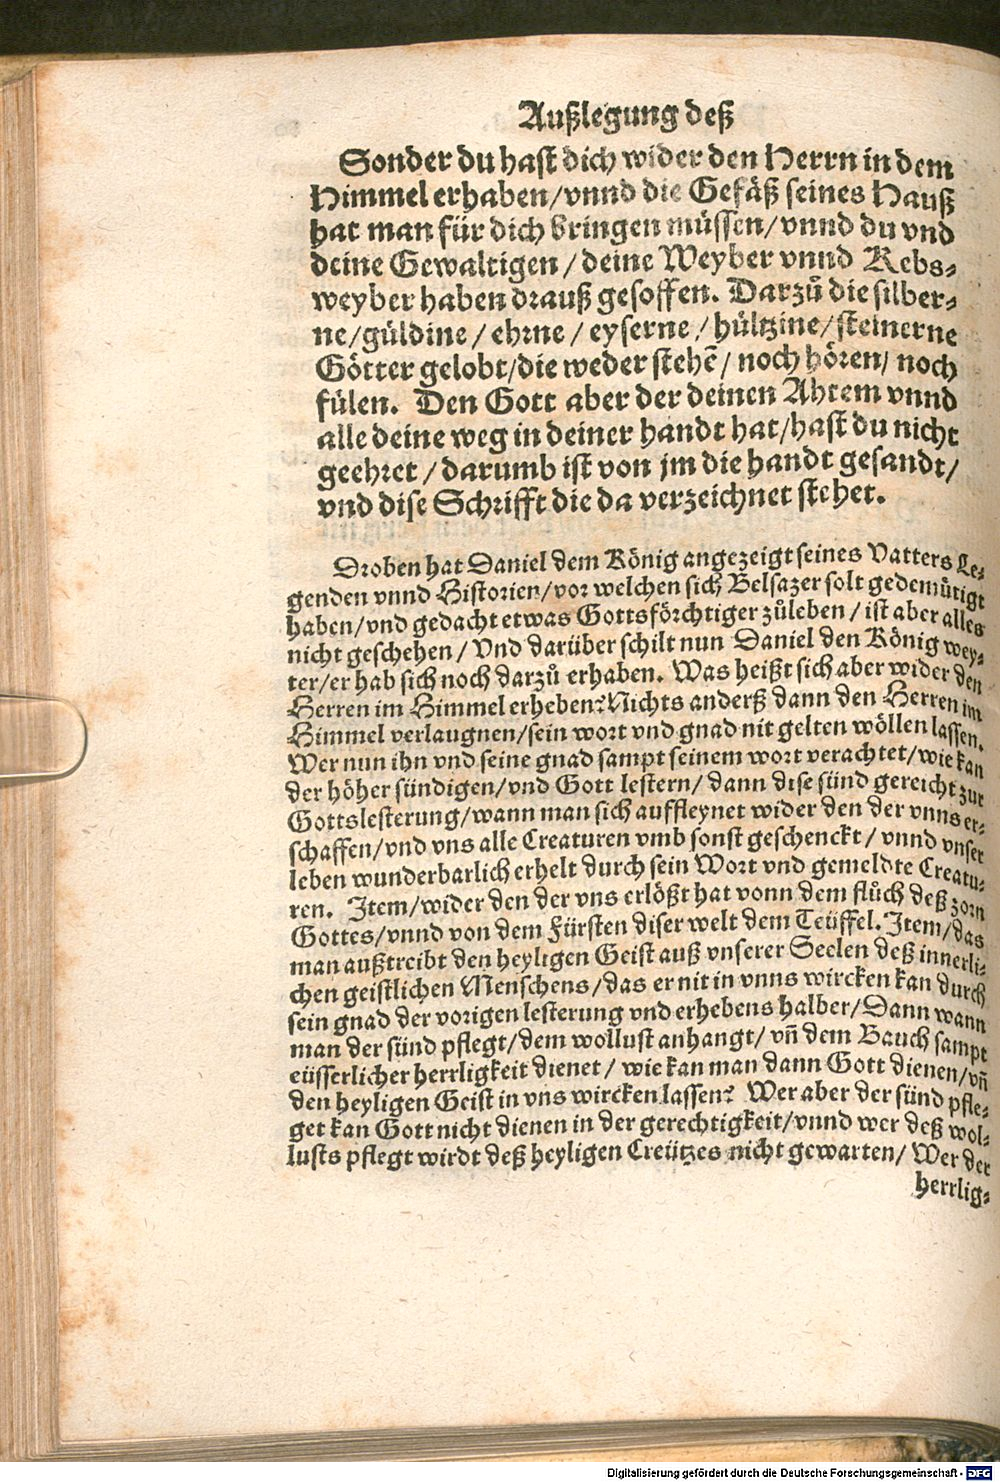 Außlegung deß
Sonder du hast dich wider den Herrn in dem
Himmel erhaben/vnnd die Gefäß seines Hauß
hat man für dich bringen müssen/vnnd du vnd
deine Gewaltigen/deine Weyber vnnd Kebs⸗
weyber haben drauß gesoffen. Darzuͦ die silber⸗
ne/güldine/ehrne/eyserne/hültzine/steinerne
Götter gelobt/die weder stehē/noch hören/noch
fülen. Den Gott aber der deinen Ahtem vnnd
alle deine weg in deiner handt hat/hast du nicht
geehret/darumb ist von jm die handt gesandt/
vnd dise Schrifft die da verzeichnet stehet.
Droben hat Daniel dem König angezeigt seines Vatters Le⸗
genden vnnd Historien/vor welchen sich Belsazer solt gedemütigt
haben/vnd gedacht etwas Gottsförchtiger zuͦleben/ist aber alles
nicht geschehen/Vnd darüber schilt nun Daniel den König wey⸗
ter/er hab sich noch darzuͦ erhaben. Was heißt sich aber wider den
Herren im Himmel erheben? Nichts anderß dann den Herren im
Himmel verlaugnen/sein wort vnd gnad nit gelten wöllen lassen.
Wer nun ihn vnd seine gnad sampt seinem wort verachtet/wie kan
der höher sündigen/vnd Gott lestern/dann dise sünd gereicht zur
Gottslesterung/wann man sich auffleynet wider den der vnns er⸗
schaffen/vnd vns alle Creaturen vmb sonst geschenckt/vnnd vnser
leben wunderbarlich erhelt durch sein Wort vnd gemeldte Creatu⸗
ren. Item/wider den der vns erlößt hat vonn dem fluͦch deß zorn
Gottes/vnnd von dem Fürsten diser welt dem Teüffel. Item/das
man außtreibt den heyligen Geist auß vnserer Seelen deß innerli⸗
chen geistlichen Menschens/das er nit in vnns wircken kan durch
sein gnad der vorigen lesterung vnd erhebens halber/Dann wann
man der sünd pflegt/dem wollust anhangt/vñ dem Bauch sampt
eüsserlicher herrligkeit dienet/wie kan man dann Gott dienen/vñ
den heyligen Geist in vns wircken lassen? Wer aber der sünd pfle⸗
get kan Gott nicht dienen in der gerechtigkeit/vnnd wer deß wol⸗
lusts pflegt wirdt deß heyligen Creützes nicht gewarten/Wer der
herrlig⸗
Digitalisierung gefördert durch die Deutsche Forschungsgemeinschaft - DFG